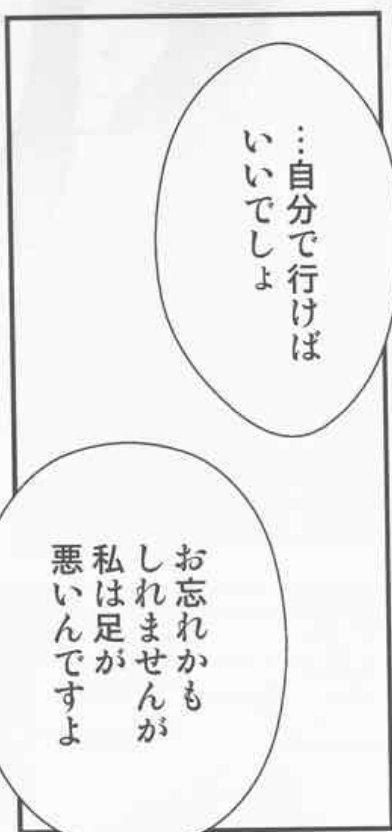 …自分で行けば
いいでしょ
お忘れかも
しれませんが
私は足が
悪いんですよ